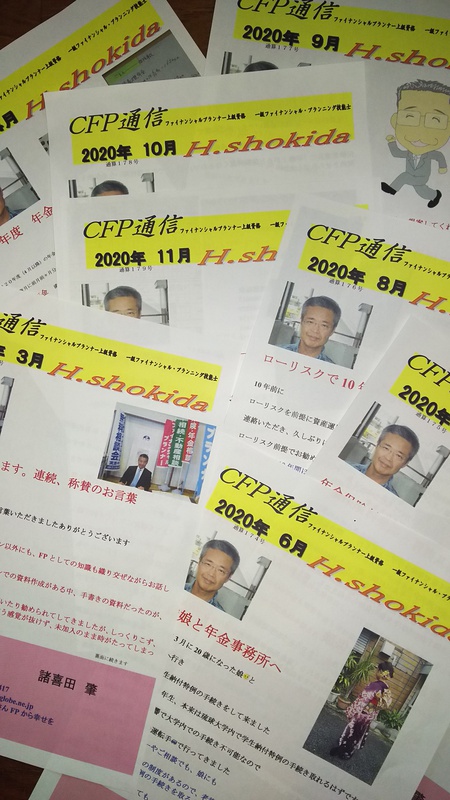 CFP通信 ファイナンシャルプランナー上級資格
2020年 9月
通算177号
4月
H.shokida
年度 年金
CFP通信 ファイナンシャルプランナー上級資格 一級ファイナンシャル・プランニング技能士
2020年 10月 H.shokida
通算178号
CFP通信 ファイナンシャルプランナー上級資格 一級ファイナンシャル・プランニング技能士
2020年 11月 H.sho
通算179号
CFP通信 ファイナンシャルプランナー上級資格
2020年 8月 H.
通算176号
ローリスクで10年
10年前に
ローリスクを前提に資産運
連絡いただき、久しぶりに
ローリスク前提でお勧め
CFP
2020年
通信 ファイナンシャルプランナー上級資格 一級ファイナンシャル・プランニング技能士
3月 H.shokida
相続・不動産相談
ます。連続、称賛のお言葉
言葉いただきましたありがとうございます
ン以外にも、FPとしての知識も織り交ぜながらお話し
での資料作成がある中、手書きの資料だったのが、
いたり勧められてしてきましたが、しっくりこず、
う感覚が抜けず、未加入のまま時がたってしまっ
裏面に続きます
諸喜田 肇
417
globe.ne.jp
さん FPから幸せを
CFP通信 ファイナンシャルプランナー上級資格 一級ファイナンシャル
2020年 6月 H.shokida
娘と年金事務所へ
3月に20歳になった娘と
へ行き
生納付特例の手続きをして来ました
年生、本来は琉球大学内で学生納付特例の手続き取れるはずで
響で大学内での手続き不可能なので
運転手で行ってきました
やご相談でも、娘にも
の制度があるので、
例の手続きを取る
ても